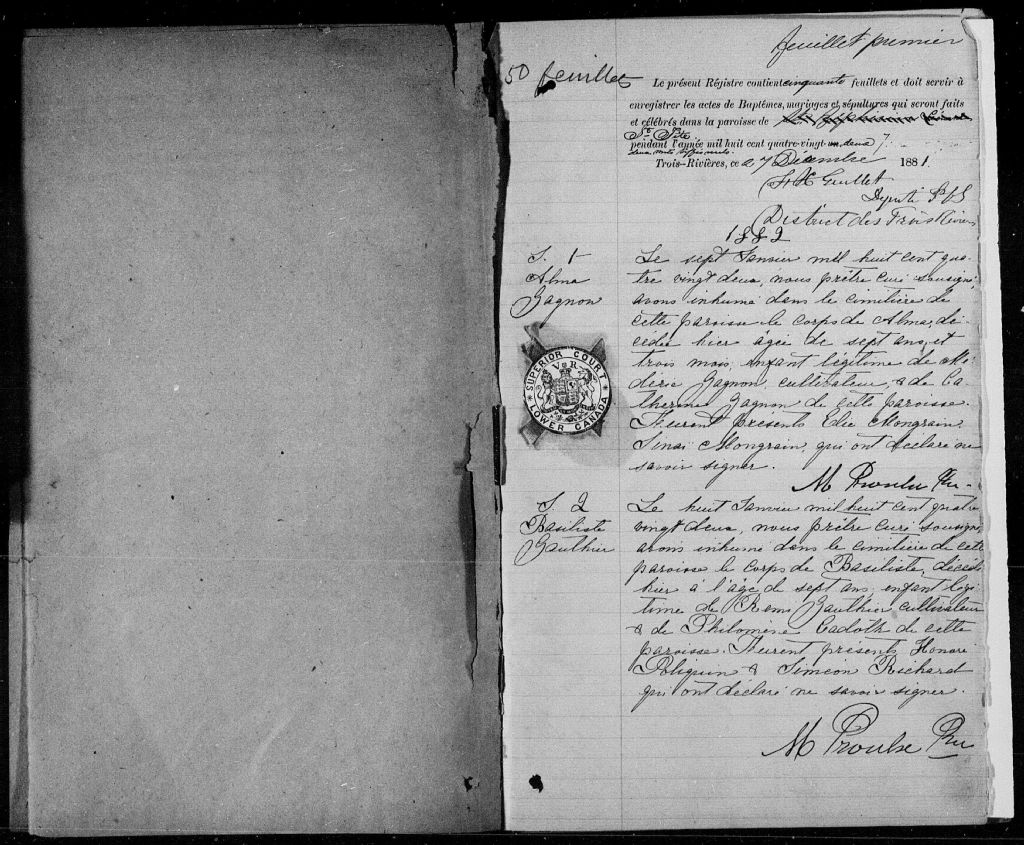 feuillet premier
50 feuillets
Le présent Régistre contient cinquante feuillets et doit servir à
enregistrer les actes de Baptêmes, mariages et sépultures qui seront faits
et célébrés dans la paroisse de
pendant l'année mil huit cent quatre-vingt-un deux
deux mots biffés nuls.
Trois-Rivières, ce 27 Décembre 1881.
Guillet
Député P.C.S
District des Trois Rivières
1882
S. 1
Alma
Gagnon
Le sept Janvier mil huit cent qua-
tre vingt deux, nous prêtre curé soussigné,
avons inhumé dans le cimitière de
cette paroisse le corps de Alma, dé-
cédée hier âgée de sept ans, et
trois mois, enfant légitime de Mé-
déric Gagnon, cultivateur, & de Ca-
therine Gagnon de cette paroisse.
Furent présents Elie Mongrain,
Sinaï Mongrain, qui ont déclaré ne
savoir signer.
M Proulx Ptre
SUPERIOR COURT
V R
LOWER CANADA
S. 2
Basiliste
Gauthier
Le huit Janvier mil huit cent quatre
vingt deux, nous prêtre curé soussigné
avons inhumé dans le cimitière de cette
paroisse le corps de Basiliste, décédée
hier à l'âge de sept ans, enfant légi-
time de Remi Gauthier cultivateur
& de Philomène Cadoth de cette
paroisse. Furent présents Honoré
Poliquin & Siméon Richard
qui ont déclaré ne savoir signer.
M Proulx Ptre